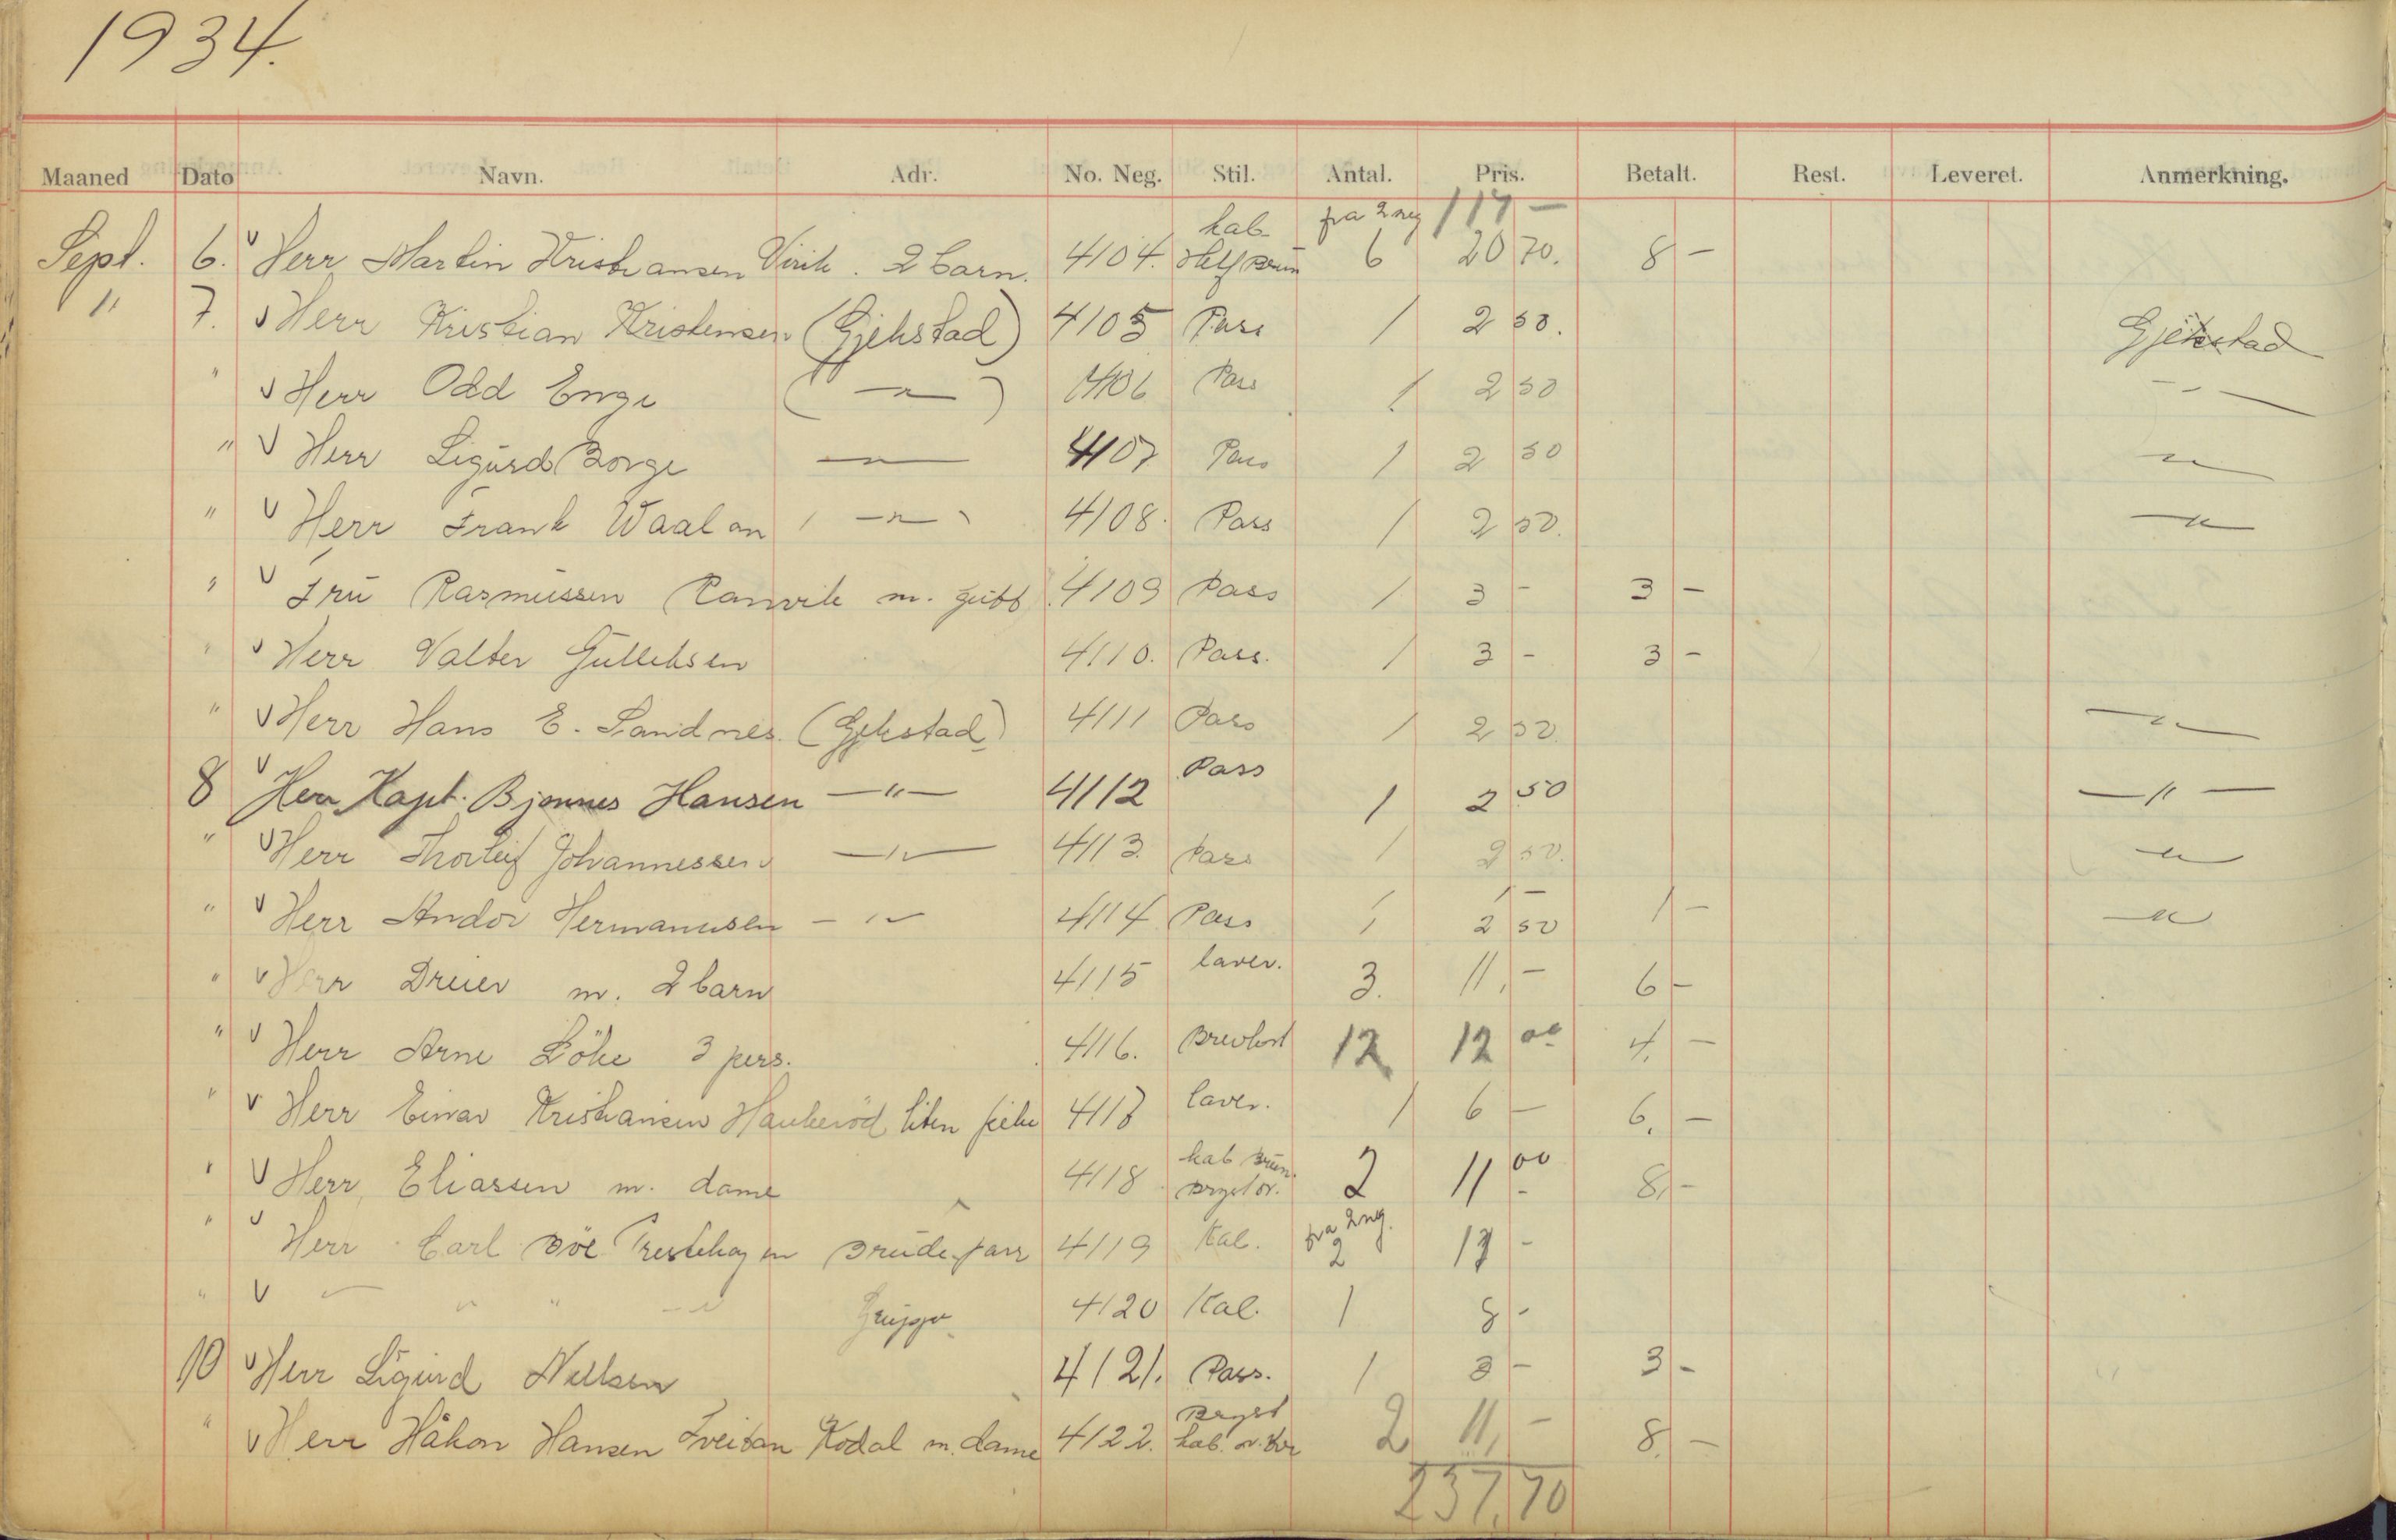 1934.
Maaned Dato Navn. Adr. No. Neg. Stil. Antal. Pris. Betalt. Rest. Leveret. Anmerkning.
kab fra 2 neg 117 -
Sept. 6. v Herr Martin Kristiansen Virik. 2 barn. 4104. Helf brun 6 20 70. 8 -
" 7. v Herr Kristian Kristensen (Gjekstad) 4105 Pass 1 2 50. Gjekstad
" v Herr Odd Enge ( -"- ) 4106 Pass 1 2 50 -"-
" v Herr Sigurd Borge -"- 4107 Pass 1 2 50 -"-
" v Herr Frank Waalan ( -"- ) 4108. Pass 1 2 50. -"-
" v Fru Rasmussen Ranvik m. gutt 4109 Pass 1 3 - 3 -
" v Herr Valter Gulliksen 4110. Pass. 1 3 - 3 -
" v Herr Hans E. Sandnes. (Gjekstad) 4111 Pass 1 2 50. -"-
8 v Herr Kapt. Bjønnes Hansen -"- 4112 Pass 1 2 50 -"-
" v Herr Thorleif Johannessen -"- 4113. Pass 1 2 50. -"-
1 -
" v Herr Andor Hermansen -"- 4114 Pass 1 2 50 1 - -"-
" v Herr Dreier m. 2 barn 4115 laver. 3. 11, - 6 -
" v Herr Arne Löke 3 pers. 4116. Brevkort 12 12 00 4, -
" v Herr Einar Kristiansen Haukeröd liten pike 4117 laver. 1 6 - 6, -
" v Herr Eliassen m. dame 4118 kab brun. bryst or. 2 11 00 8, -
" v Herr Carl Böe Prestehagen Brudepar 4119 Kab. fra 2 neg. 2 17 -
" v " " " -"- Gruppe 4120 Kab. 1 8 -
10 v Herr Sigurd Nilsen 4121. Pass. 1 3 - 3 -
" v Herr Håkon Hansen Tveitan Kodal m. dame 4122. Bryst kab. 2 11, - 8, -
237,70